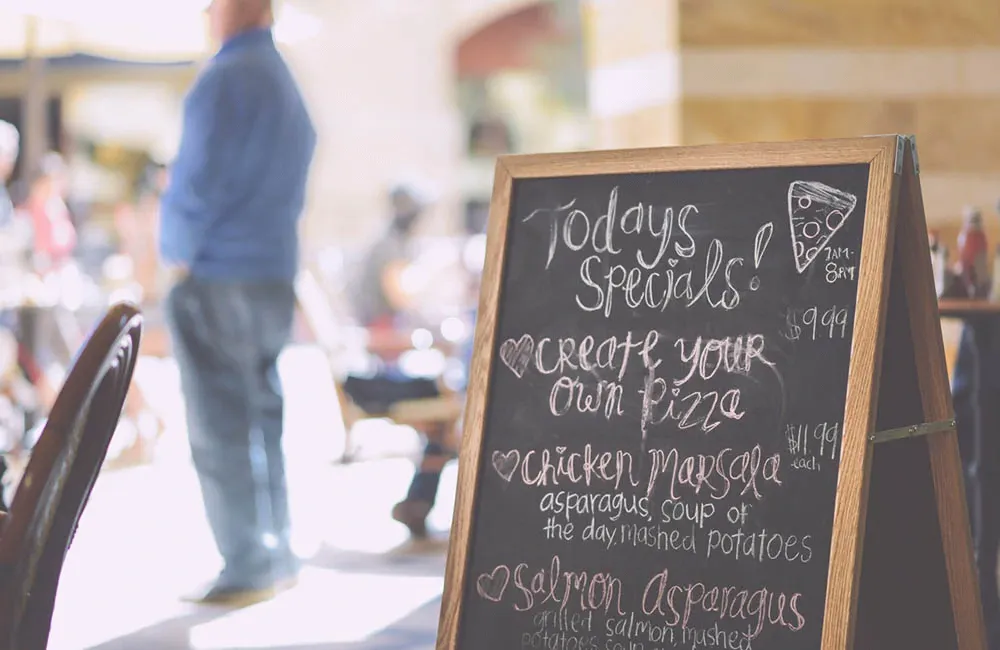 Todays
Specials!
7AM-
8PM
$9.99
Create your
own Pizza
$11.99
each
Chicken Marsala
asparagus, soup of
the day, mashed potatoes
Salmon Asparagus
grilled salmon, mashed
potatoes soup